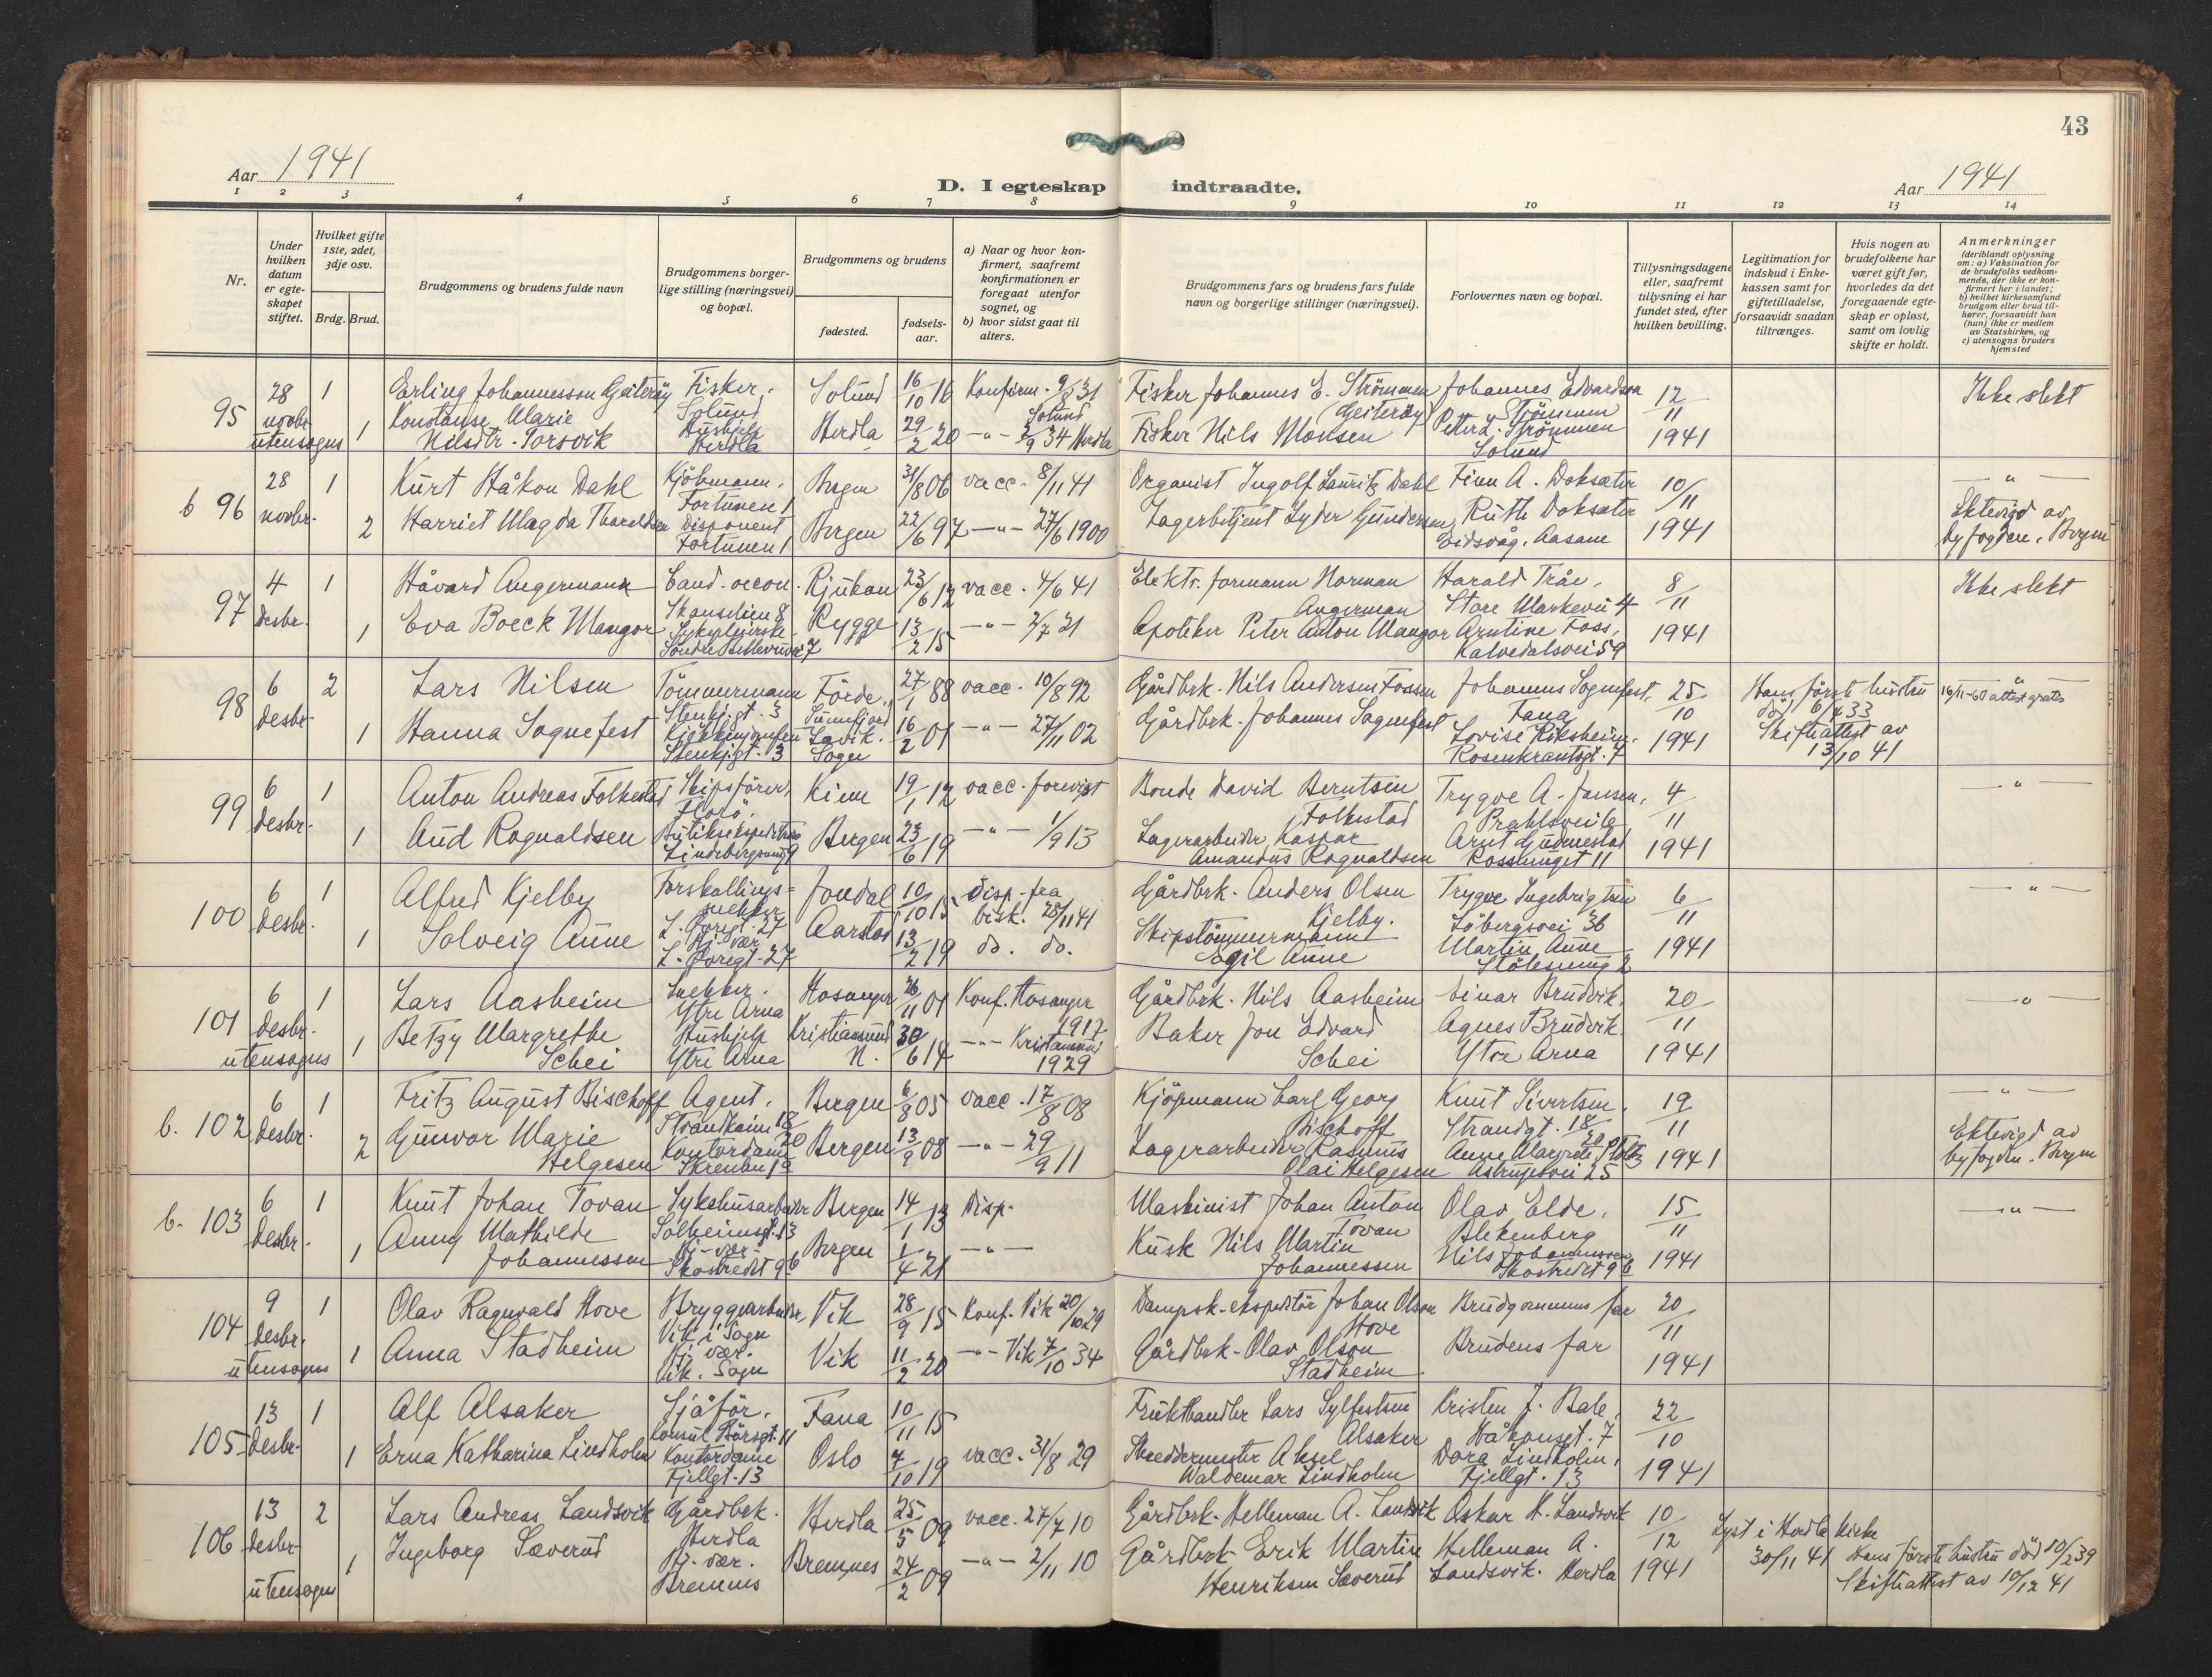 43
Aar 1941
D. I egteskap indtraadte.
Aar 1941
1 2 3 4 5 6 7 8 9 10 11 12 13 14
Nr.
Under hvilken datum er egteskapet stiftet.
Hvilket gifte 1ste, 2det, 3dje osv.
Brdg. Brud.
Brudgommens og brudens fulde navn
Brudgommens borgerlige stilling (næringsvei) og bopæl.
Brudgommens og brudens
fødested.
fødselsaar.
a) Naar og hvor konfirmert, saafremt konfirmationen er foregaat utenfor sognet, og
b) hvor sidst gaat til alters.
Brudgommens fars og brudens fars fulde navn og borgerlige stillinger (næringsvei).
Forlovernes navn og bopæl.
Tillysningsdagene eller, saafremt tillysning ei har fundet sted, efter hvilken bevilling.
Legitimation for indskud i Enkekassen samt for giftetilladelse, forsaavidt saadan tiltrænges.
Hvis nogen av brudefolkene har været gift før, hvorledes da det foregaaende egteskap er opløst, samt om lovlig skifte er holdt.
Anmerkninger (deriblandt oplysning om: a) Vaksination for de brudefolks vedkommende, der ikke er konfirmert her i landet; b) hvilket kirkesamfund brudgom eller brud tilhører, forsaavidt han (hun) ikke er medlem av Statskirken, og c) utensogns bruders hjemsted
95 28 novbr. utensogns 1 Erling Johannesson Geiteröy Fisker. Solund Solund 16/10 16 Konfirm. 9/8 31 Solund Fisker Johannes E. Strömmen (Geiteröy) Johannes Edvardsen Strömmen 12/11 1941 Ikke slekt
1 Konstanse Marie Nilsdtr. Torsvik Hushjelp Herdla Herdla 29/2 20 -"- 2/9 34 Herdla Fisker Nils Monsen Peter L. Strömmen Solund
b 96 28 novbr. 1 Kurt Håkon Dahl Kjöbmann. Fortunen 1 Bergen 31/8 06 vacc. 8/11 41 Organist Ingolf Lauritz Dahl Finn A. Doksæter 10/11 1941 -"-
2 Harriet Magda Tharaldsen Disponent Fortunen 1 Bergen 22/6 97 -"- 27/6 1900 Lagerbetjent Lyder Gundersen Ruth Doksæter Eidsvåg. Aasane Ektevigd av byfogden. Bergen
97 4 desbr. 1 Håvard Angermann Cand. oecon. Skanselien 8 Rjukan 23/6 12 vacc. 4/6 41 Elektr. formann Norman Angerman Harald Tråe. Store Markevei 4 8/11 1941 Ikke slekt
1 Eva Boeck Mangor Sykepleierske Söndre Bellevuevei 7 Rygge 13/2 15 -"- 2/7 21 Apoteker Peter Anton Mangor Arntine Foss, Kalvedalsvei 59
98 6 desbr. 2 Lars Nilsen Tömmermann Stenkjgt. 3 Förde, Sunnfjord 27/1 88 vacc. 10/8 92 Gårdbrk. Nils Andersen Fossen Johannes Sognefest, Fana 25/10 1941 Hans förste hustru död 6/4 33 Skifteattest av 13/10 41 16/11-60 attest gratis -"-
1 Hanna Sognefest Kjökkenjomfru Stenkjgt. 3 Lavik. Sogn 16/2 01 -"- 27/11 02 Gårdbrk. Johannes Sognefest Lovise Riksheim. Rosenkrantzgt. 7
99 6 desbr. 1 Anton Andreas Folkestad Skipsförer, Florö. Kinn 19/1 12 vacc. forevist Bonde David Berntsen Folkestad Trygve A. Jansen, Prahlsvei 4/11 1941 -"-
1 Aud Rognaldsen Butikkekspeditrise Bergen 23/6 19 -"- 1/9 13 Lagerarbeider Kaspar Amandus Rognaldsen Arnt Gudmestad Rosslunget 11
100 6 desbr. 1 Alfred Kjelby Forskallingssnekker L. Övregt. 27 Jondal 10/10 15 Disp. fra bisk. 28/11 41 Gårdbrk. Anders Olsen Kjelby. Trygve Ingebrigtsen Löbergsvei 36 6/11 1941 -"-
1 Solveig Aune Hj. vær. L. Övregt. 27 Aarstad 13/2 19 do. do. Skipstömmermann Egil Aune Martin Aune
101 6 desbr. utensogns 1 Lars Aasheim Snekker. Ytre Arna Hosanger 26/11 01 Konf. Hosanger 1917 Gårdbrk. Nils Aasheim Einar Brudvik. 20/11 1941 -"-
1 Betzy Margrethe Schei Hushjelp Ytre Arna Kristiansund N. 30/6 14 -"- Kristiansund 1929 Baker Jon Edvard Schei Agnes Brudvik Ytre Arna
b. 102 6 desbr. 1 Fritz August Bischoff Agent. Strandkaien 18/20 Bergen 6/8 05 vacc. 17/8 08 Kjöpmann Carl Georg Bischoff Knut Sivertsen. Strandgt. 18/20 19/11 1941 -"-
2 Gunvor Marie Helgesen Kontordame Skrenten 19 Bergen 13/9 08 -"- 29/9 11 Lagerarbeider Rasmus Olai Helgesen Anne Margrete Stoltz Astrupsvei 25 Ektevigd av byfogden. Bergen
b. 103 6 desbr. 1 Knut Johan Tovan Sykehusarbeider Solheimsgt. 13 Bergen 14/1 13 Disp. Maskinist Johan Anton Tovan Olav Elde. Blekenberg 15/11 1941 -"-
1 Anny Mathilde Johannessen Hj. vær. Skostredet 9 b Bergen 1/4 21 -"- Kusk Nils Martin Johannessen Nils Johannessen Skostredet 9 b
104 9 desbr. utensogns 1 Olav Ragnvald Hove Bryggearbeider, Vik i Sogn Vik 28/9 15 Konf. Vik 20/10 29 Dampsk. ekspeditör Johan Olson Hove Brudgommens far 20/11 1941
1 Anna Stadheim Hj. vær. Vik. Sogn Vik 11/2 20 -"- Vik 7/10 34 Gårdbrk. Olav Olson Stadheim Brudens far
105 13 desbr. 1 Alf Alsaker Sjåför. Konsul Börsgt. 11 Fana 10/11 15 Frukthandler Lars Sylfestsen Alsaker Kristen J. Bale. Håkonsgt. 7 22/10 1941
1 Erna Katharina Lindholm Kontordame Fjellgt. 13 Oslo 7/10 19 vacc. 31/8 29 Skreddermester Aksel Waldemar Lindholm Dora Lindholm, Fjellgt. 13
106 13 desbr. utensogns 2 Lars Andreas Landsvik Gårdbrk. Herdla Herdla 25/5 09 vacc. 27/7 10 Gårdbrk. Helleman A. Landsvik Oskar H. Landsvik 10/12 1941 Lyst i Herdla kirke 30/11 41 Hans förste hustru död 10/2 39 Skifteattest av 10/12 41
1 Ingeborg Sæverud Hj. vær. Bremnes Bremnes 24/2 09 -"- 2/11 10 Gårdbrk Erik Martin Henriksen Sæverud Helleman A. Landsvik. Herdla